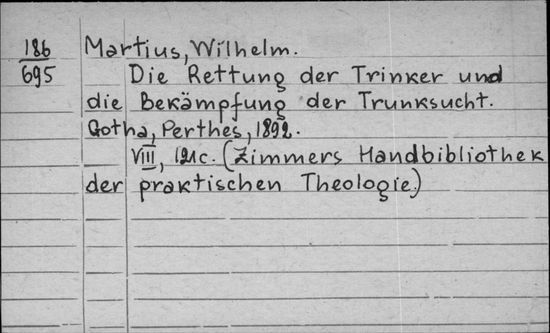 186
695
Martius, Wilhelm.
Die Rettung der Trinker und
die Bekämpfung der Trunksucht.
Gotha, Perthes, 1892.
VIII, 121 c. (Zimmers Handbibliothek
der praktischen Theologie.)